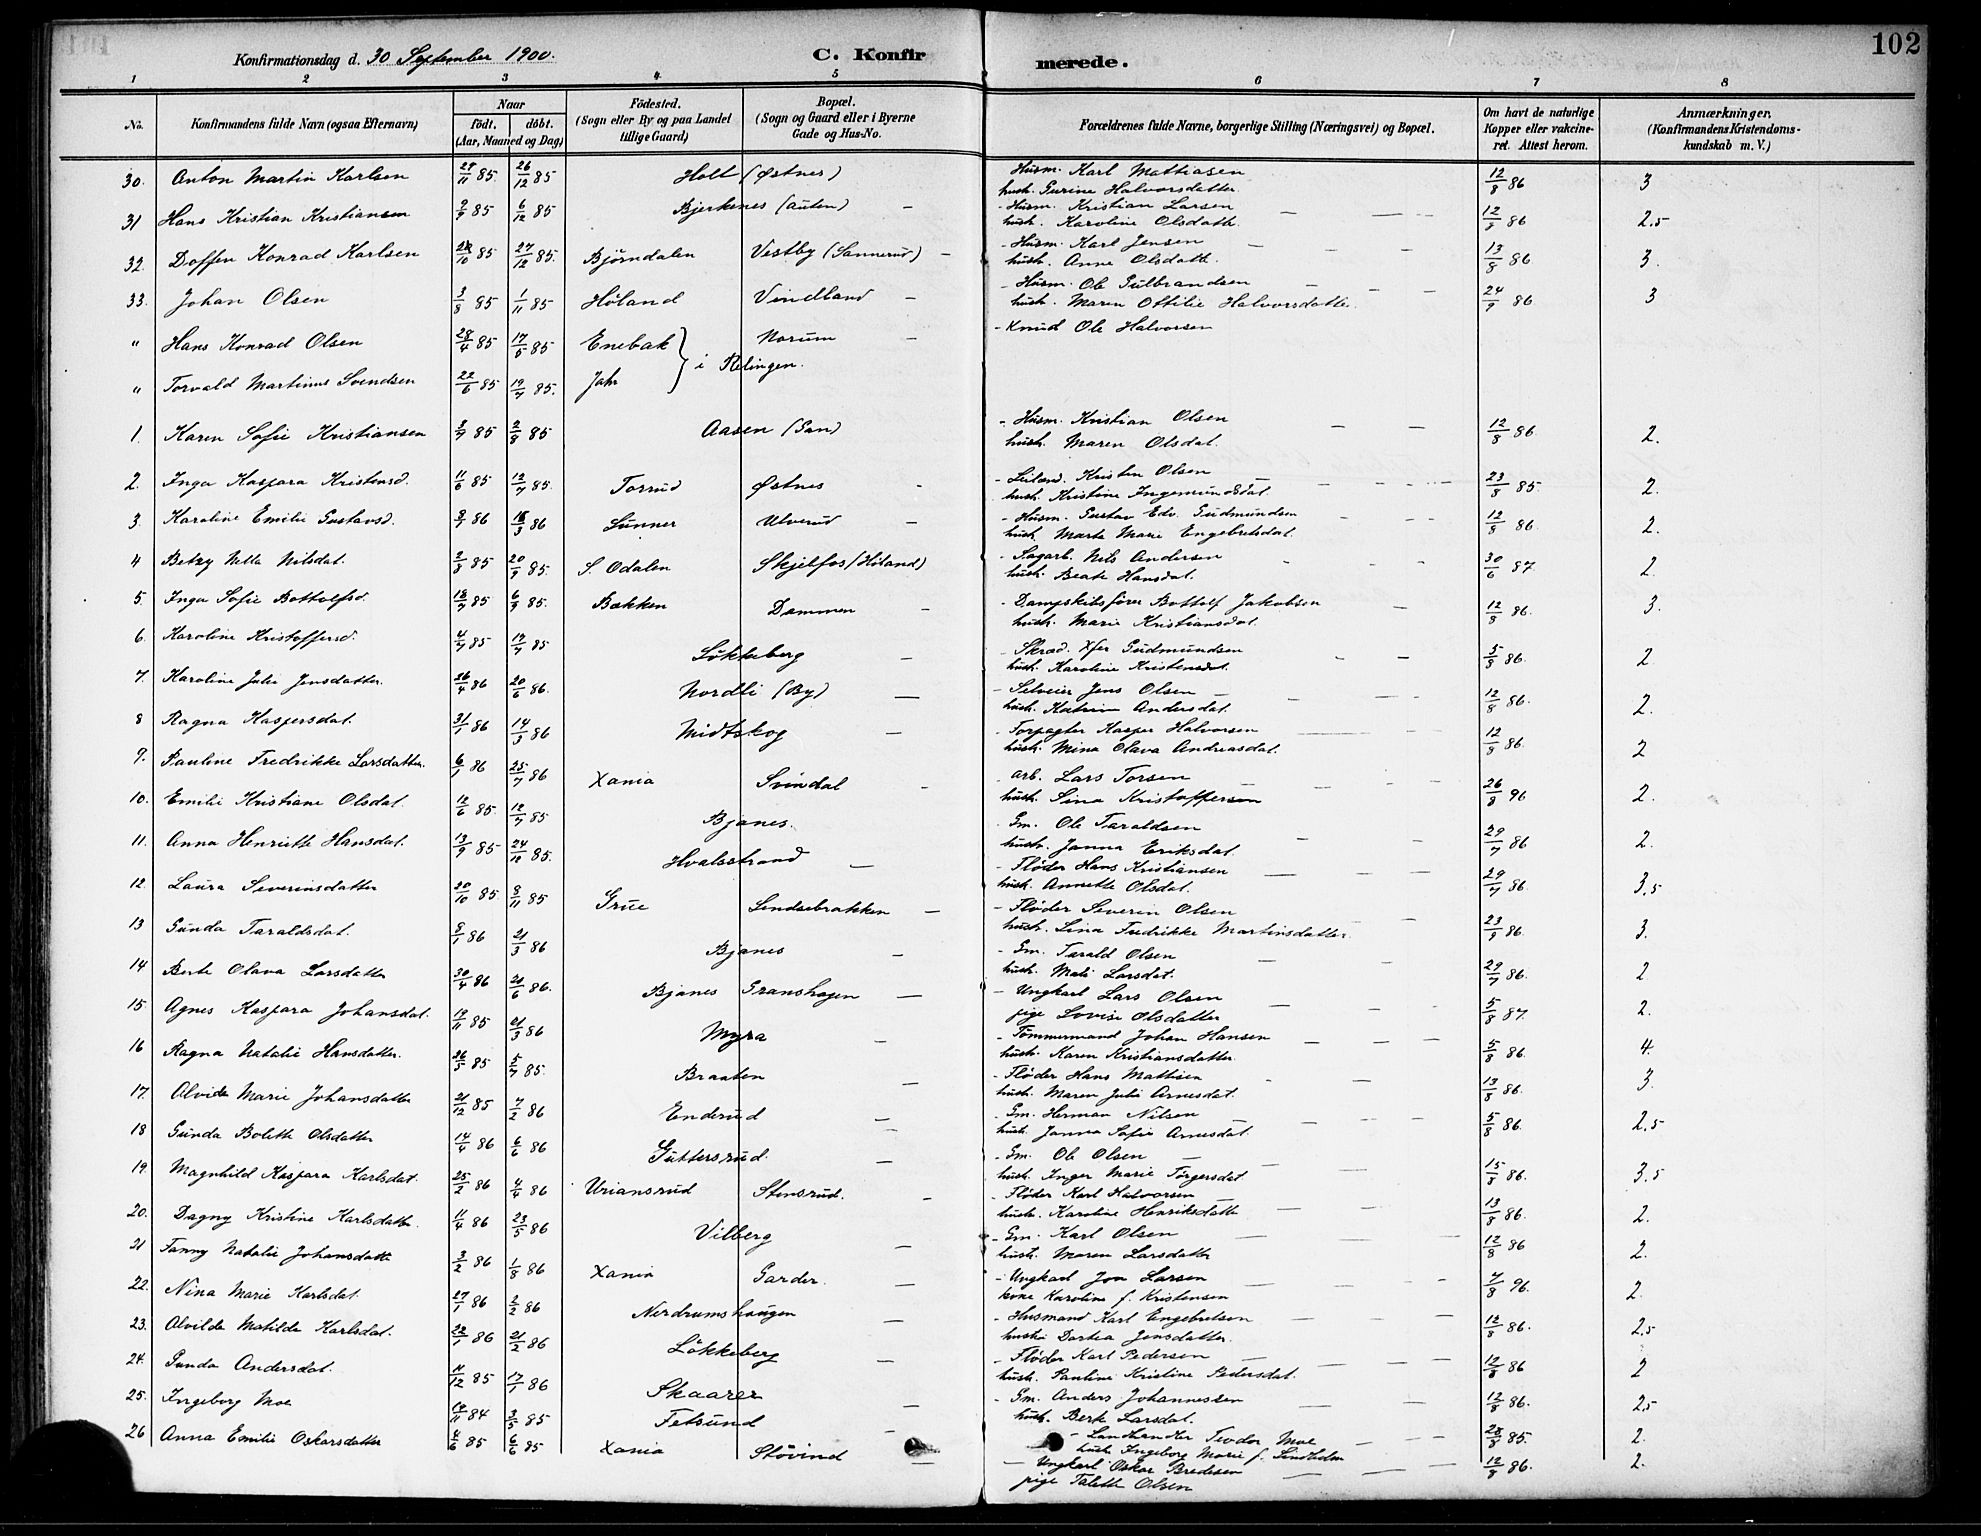 102
Konfirmationsdag d. 30 September 1900. C. Konfirmerede.
1 2 3 4 5 6 7 8
No. Konfirmandens fulde Navn (ogsaa Efternavn) Naar födt. döbt. (Aar, Maaned og Dag) Födested. (Sogn eller By og paa Landet tillige Gaard) Bopæl. (Sogn og Gaard eller i Byerne Gade og Hus-No. Forældrenes fulde Navne, borgerlige Stilling (Næringsvei) og Bopæl. Om havt de naturlige Kopper eller vakcineret. Attest herom. Anmærkninger. (Konfirmandens Kristendomskundskab m. V.)
30. Anton Martin Karlsen 11 85 26/12 85 Holt (Østnes) Husm. Karl Mattiasen hust. Gurine Halvorsdatter 12/8 86 3
31 Hans Kristian Kristiansen 2/9 85 6/12 85 Bjerkenes (Auten) Husm. Kristian Larsen hust. Karoline Olsdatt. 12/8 86 2.5
32. Doffen Konrad Karlsen 10 85 27/12 85. Björndalen Vestby (Sannerud) Husm. Karl Jensen hust. Anne Olsdatt. 13/8 86 3.
33. Johan Olsen 3/8 85 1/11 85 Höland Vindland Husm. Ole Gulbrandsen hust. Maren Ottilie Halvorsdatter 24/9 86 3
" Hans Konrad Olsen 28/4 85 17/5 85 Enebak Norum Knud Ole Halvorsen
" Torvald Martinus Svendsen 22/6 85 19/7 85. Jahr } i Relingen.
1. Karen Sofie Kristiansen 3/7 85 2/8 85 Aasen (Gan) Husm. Kristian Olsen hust. Maren Olsdat. 12/8 86. 2.
2. Inga Kaspara Kristensd. 11/6 85 12/7 85. Torrud Østnes Leiland. Kristen Olsen hust. Kristine Ingemundsdat 23/8 85. 2.
3. Karoline Emilie Gustavsd. 86 3 86 Lunner Ulverud Husm. Gustav Edv. Gudmundsen hust. Marte Marie Engebretsdat. 12/8 86. 2.
4 Betzy Nella Nilsdat. 2/8 85 20/9 85. S. Odalen Skjelfos (Höland) Sagarb. Nils Andersen hust. Beate Hansdat. 30/6 87. 2.
5. Inga Sofie Bottolfsd. 18/7 85 6/9 85. Bakken Dammen Dampskibsfører Bottolf Jakobsen hust. Marie Kristiansdat. 12/8 86. 3.
6. Karoline Kristoffersd. 4/7 85 19/7 85 Løkkeberg Skræd. Xfer Gudmundsen hust. Karoline Kristensdat. 5/8 86. 2
7. Karoline Julie Jensdatter. 26/4 86 20/6 86. Nordli (By) Selveier Jens Olsen hust. Katrine Andersdat. 12/8 86. 2.
8 Ragna Kaspersdat. 31/1 86 14/3 86 Midtskog Forpagter Kasper Halvorsen hust. Mina Olava Andreasdat. 12/8 86. 2
9. Pauline Fredrikke Larsdatter. 6/1 86 25/7 86 Xania Svindal arb. Lars Torsen hust. Sina Kristofferson 26/8 96 2.
10. Emilie Kristiane Olsdat. 12/6 85. 12/7 85 Bjanes. Gm. Ole Taraldsen hust. Janna Eriksdat. 29/7 86 2.
11. Anna Henriette Hansdat. 13/9 85 24/10 85. Hvalsstrand Fløder Hans Kristiansen hust. Annette Olsdat. 29/7 86. 3,5
12. Laura Severinsdatter 20/10 85. 8/11 85 Grue Lendsebrakken Fløder Severin Olsen hust. Lina Fredrikke Martinsdatter. 23/9 86. 3.
13 Gunda Taraldsdat. 8/1 86 21/3 86 Bjanes Gm. Tarald Olsen hust. Mali Larsdat. 29/7 86. 2
14 Berte Olava Larsdatter 30/4 86 20/6 86. Bjanes Granshagen Ungkarl Lars Olsen pige Lovise Olsdatter 5/8 87. 2.
15. Agnes Kaspara Johansdat. 19/11 85 21/3 86 Myra Tømmermand Johan Hansen hust. Karen Kristiansdatter. 5/8 86. 4.
16 Ragna Natalie Hansdatter. 26/5 85 5/7 85. Braaten Fløder Hans Mathisen hust. Maren Julie Arnesdat. 13/8 86. 3.
17. Alvide Marie Johansdatter 21/12 85 7/2 86 Enderud Gm. Herman Nilsen hust. Janna Sofie Arnesdat. 5/8 86. 2,5
18 Gunda Bolette Olsdatter 14/4 86 6/6 86 Guttersrud. Gm. Ole Olsen hust. Inger Marie Torgersdat. 15/8 86. 3,5
19. Magnhild Kaspara Karlsdat. 25/2 86 4/4 86 Uriansrud Stensrud. Fløder Karl Halvorsen hust. Karoline Henriksdatter 13/8 86. 2.
20. Dagny Kristine Karlsdatter. 11/4 86 23/5 86 Vilberg Gm. Karl Olsen hust. Maren Larsdatter 12/8 86 2.
21 Fanny Natalie Johansdatter 3/2 86 1/8 86 Xania Garder. Ungkarl Joa Larsen kone Karoline f. Kristensen 7/8 96. 2.
22. Nina Marie Karlsdat. 27/1 86 2/2 86 Nerdrumshaugen Husmand Karl Engebretsen hustru Dortea Jensdatter. 12/8 86. 2,5
23. Alvilde Matilde Karlsdat. 22/1 86 21/2 86 Løkkeberg Fløder Karl Pedersen hust. Pauline Kristine Pedersdat. 12/8 86 2
24. Gunda Andersdat. 11/12 85 17/1 86 Skaarer Gm. Anders Johannessen hust. Berte Larsdat. 12/8 86. 2,5
25. Ingeborg Moe 19/11 84 3/5 85 Fetsund Landhandler Teodor Moe hust. Ingeborg Marie f. Lindholm 28/8 85. 2.
26 Anna Emilie Oskarsdatter 4/6 85 6/6 85 Xania Støvind Ungkarl Oskar Bredesen pige Talette Olsen 12/8 86. 2.